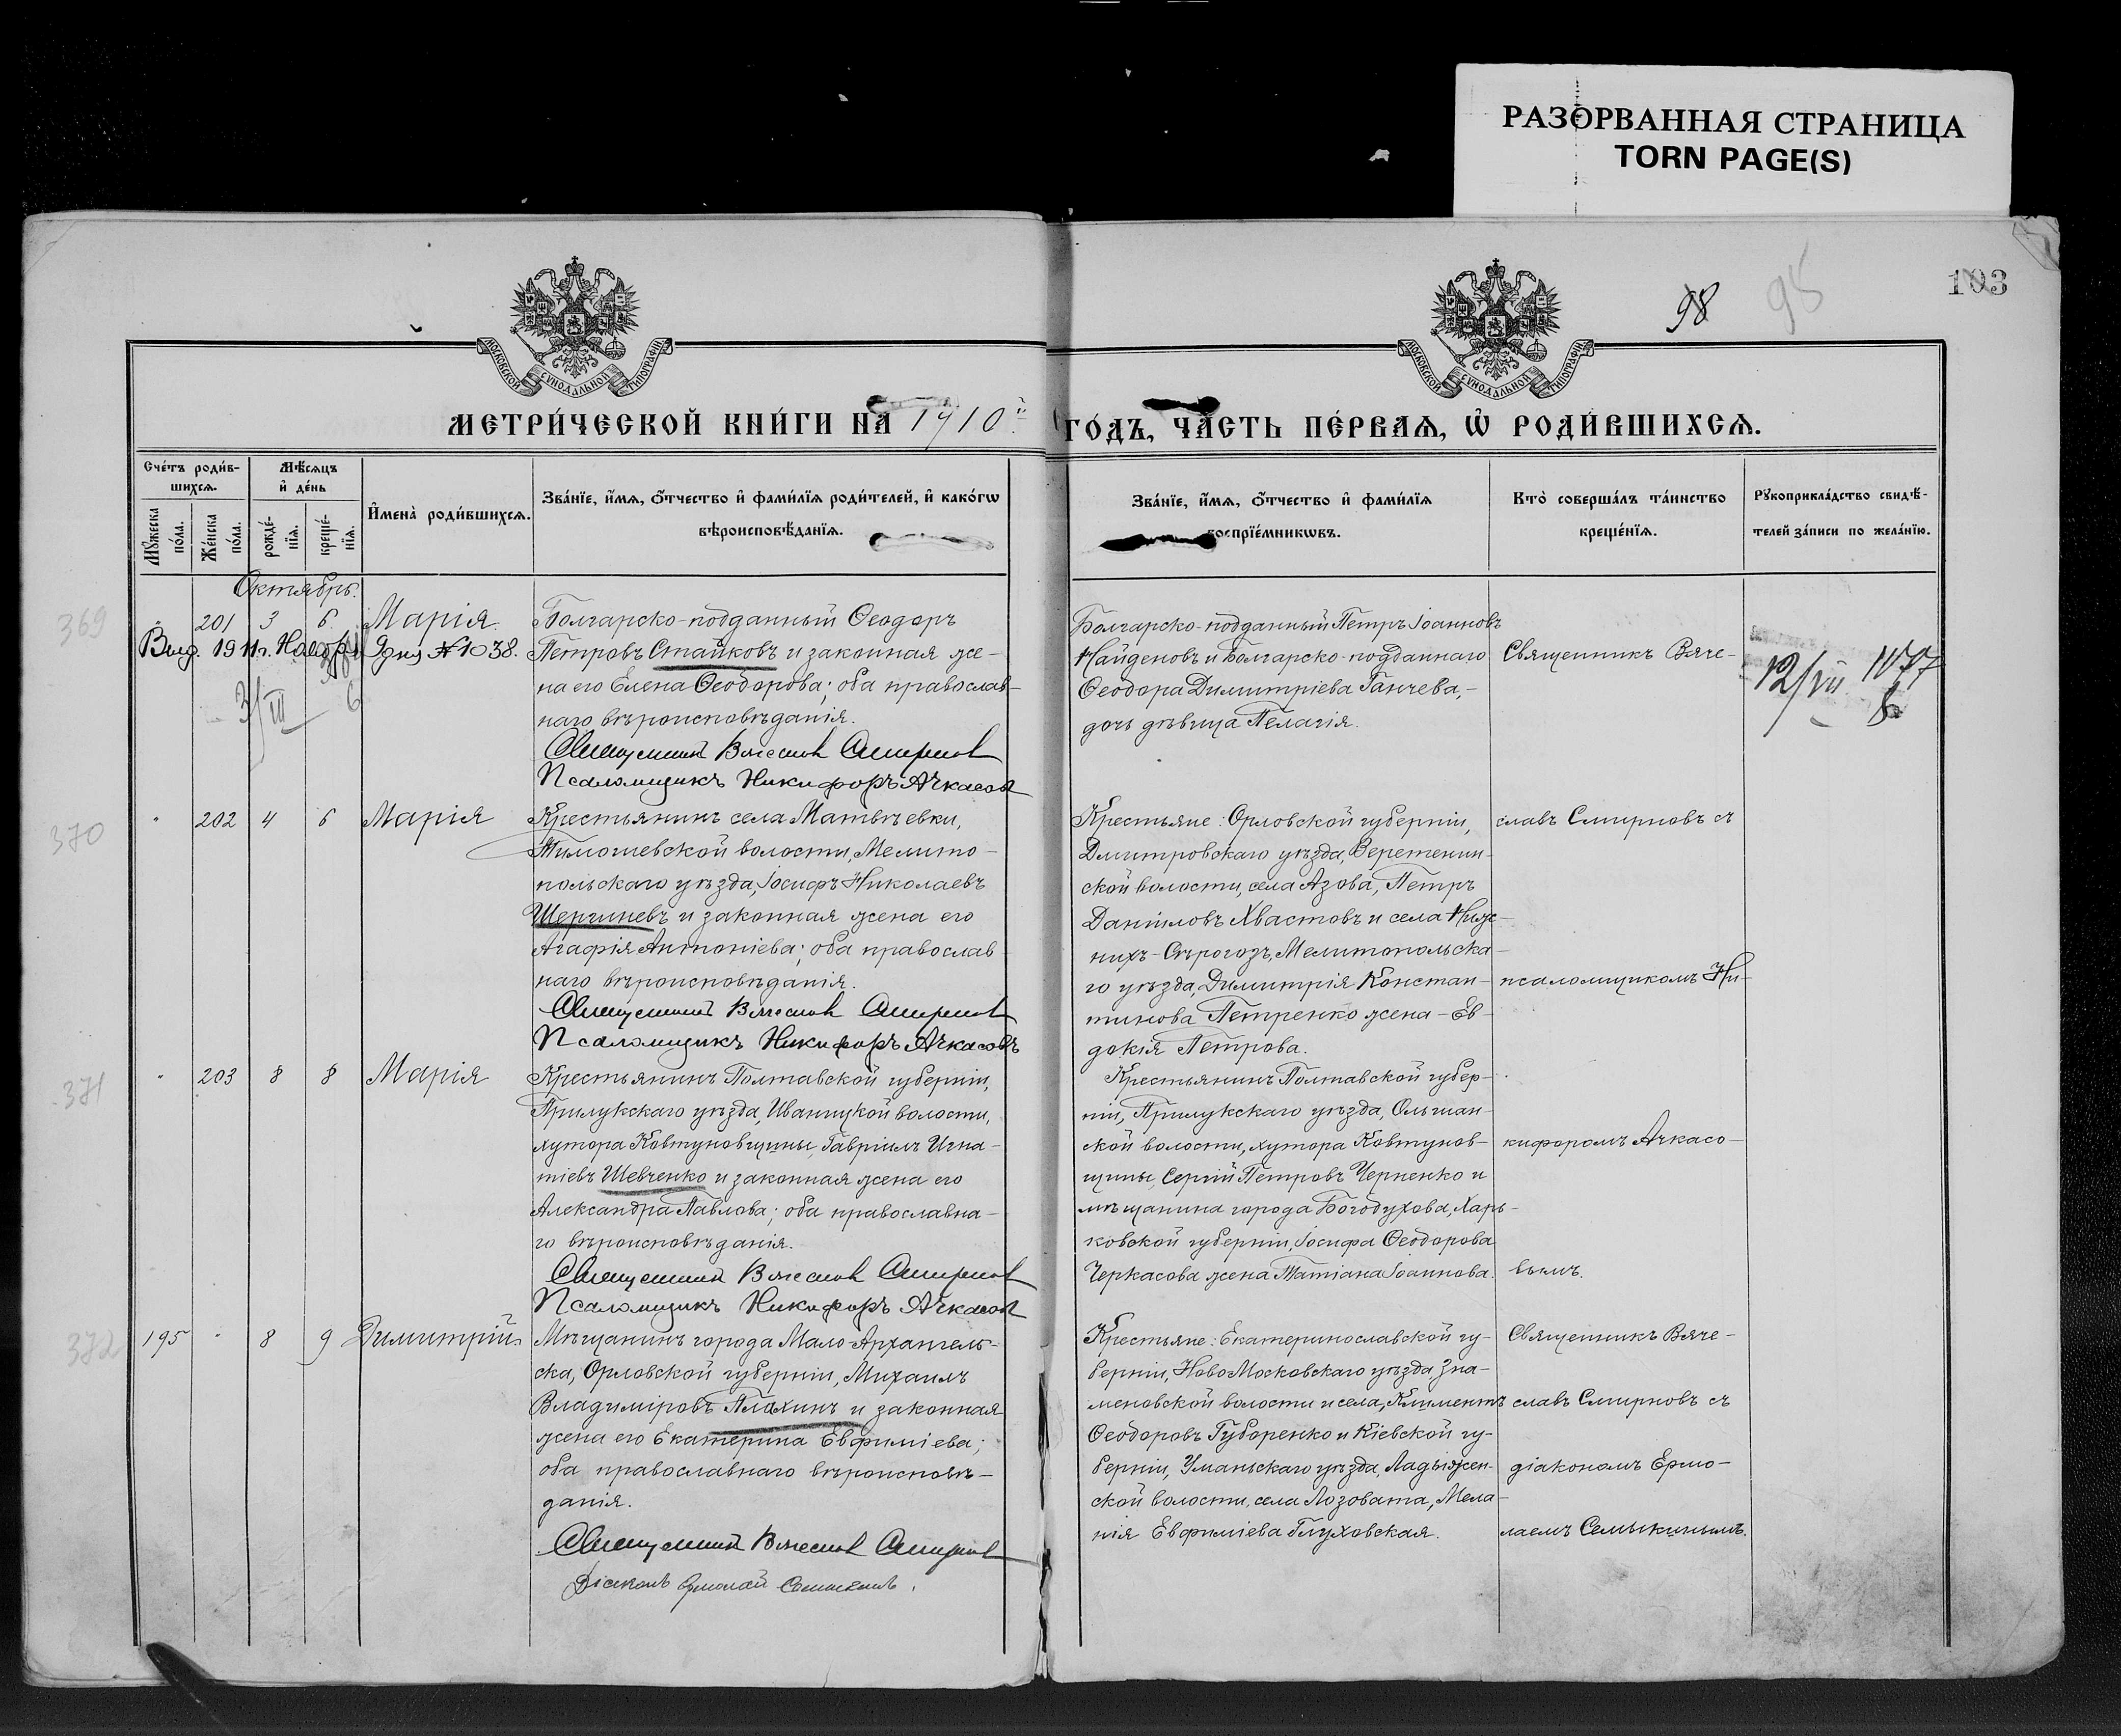 РАЗОРВАННАЯ СТРАНИЦА
TORN PAGE(S)
98
95
103
МОСКОВСКОЙ СѴНОДАЛЬНОЙ ТИПОГРАФІИ
МОСКОВСКОЙ СѴНОДАЛЬНОЙ ТИПОГРАФІИ
МЕТРИ́ЧЕСКОЙ КНИ́ГИ НА 1910й
ГО́ДЪ, ЧА́СТЬ ПЕ́РВАѦ, Ѡ҆ РОДИ́ВШИХСѦ.
Сче́тъ роди́в-
шихсѧ.
Мꙋ́жеска по́ла.
Же́нска по́ла.
Мѣ́сѧцъ
и҆ де́нь
рожде́-
нїѧ.
креще́-
нїѧ.
И҆мена̀ роди́вшихсѧ.
Зва́нїе, и҆́мѧ, ѻ҆́тчество и҆ фами́лїѧ роди́телей, и҆ како́гѡ
вѣроисповѣ́данїѧ.
Зва́нїе, и҆́мѧ, ѻ҆́тчество и҆ фами́лїѧ
воспрїе́мникѡвъ.
Кто̀ соверша́лъ та́инство
креще́нїѧ.
Рꙋкоприкла́дство свидѣ́-
телей за́писи по жела́нїю.
Октябрь.
369
" 201 3 6. Марія.
Выд. 1911 г. № 1038.
3/III 6
Болгарско-подданный Ѳеодоръ
Петровъ Стайковъ и законная же-
на его Елена Ѳеодорова; оба православ-
наго вѣроисповѣданія.
Священникъ Вячеславъ Смирновъ
Псаломщикъ Никифоръ Ачкасовъ
Болгарско-подданный Петръ Іоанновъ
Найденовъ и болгарско-подданнаго
Ѳеодора Димитріева Ганчева,-
дочь дѣвица Пелагія.
Священникъ Вяче-
12/VII 1077
370
" 202 4 6 Марія
Крестьянинъ села Матвѣевки,
Тимошевской волости, Мелито-
польскаго уѣзда, Іосифъ Николаевъ
Шергиневъ и законная жена его
Агафія Антоніева; оба православ
наго вѣроисповѣданія.
Священникъ Вячеславъ Смирновъ
Псаломщикъ Никифоръ Ачкасовъ
Крестьяне: Орловской губерніи,
Дмитровскаго уѣзда, Веретенин-
ской волости, села Азова, Петръ
Даніиловъ Хвастовъ и села Ниж-
нихъ-Сѣрогозъ, Мелитопольска-
го уѣзда, Димитрія Констан-
тинова Петренко жена - Ев-
докія Петрова.
славъ Смирновъ съ
псаломщикомъ Ни-
371
" 203 8 8 Марія
Крестьянинъ Полтавской губерніи,
Прилукскаго уѣзда, Иваницкой волости,
хутора Ковтуновщины, Гавріилъ Игна-
тіевъ Шевченко и законная жена его
Александра Павлова; оба православна-
го вѣроисповѣданія.
Священникъ Вячеславъ Смирновъ
Псаломщикъ Никифоръ Ачкасовъ
Крестьянинъ Полтавской губер-
ніи, Прилукскаго уѣзда, Ольшан-
ской волости, хутора Ковтунов-
щины, Сергій Петровъ Черненко и
мѣщанина города Богодухова, Харь-
ковской губерніи, Іосифа Ѳеодорова
Черкасова жена Татіана Іоаннова.
кифоромъ Ачкасо-
вымъ.
372
195 " 8 9 Димитрій.
Мѣщанинъ города Мало-Архангель-
ска, Орловской губерніи, Михаилъ
Владиміровъ Плахинъ и законная
жена его Екатерина Евфиміева;
оба православнаго вѣроисповѣ-
данія.
Священникъ Вячеславъ Смирновъ
Діаконъ Ермолай Семыкинъ.
Крестьяне: Екатеринославской гу-
берніи, Ново Московскаго уѣзда, Зна-
меновской волости и села, Климентъ
Ѳеодоровъ Губоренко и Кіевской гу-
берніи, Уманьскаго уѣзда, Ладыжен-
ской волости, села Лозовата, Мела-
нія Евфиміева Глуховская.
Священникъ Вяче-
славъ Смирновъ съ
діакономъ Ермо-
лаемъ Семыкинымъ.